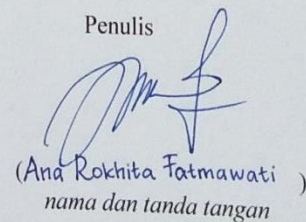 Penulis
(Ana Rokhita Fatmawati )
nama dan tanda tangan